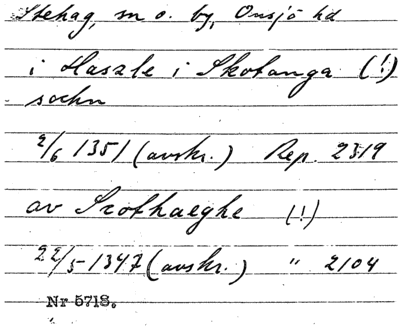 Stehag, sn o. by, Onsjö hd
i Haszle i Skotanga (!)
sochn
2/6 1351 (avskr.) Rep. 2319
av Stofhaeghe (!)
22/5 1347 (avskr.) " 2104
Nr 5718.